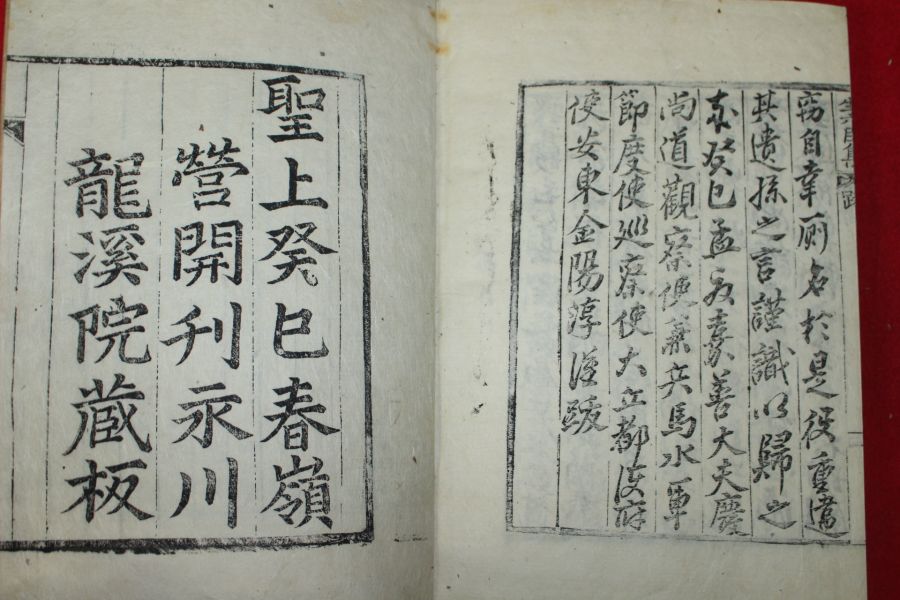 竊自幸厠名於是役重違
其遺孫之言謹識以歸之
癸巳孟夏嘉善大夫慶
尚道觀察使兼兵馬水軍
節度使巡察使大丘都護府
使安東金陽淳跋
聖上癸巳春嶺
營開刊永川
龍溪院藏板